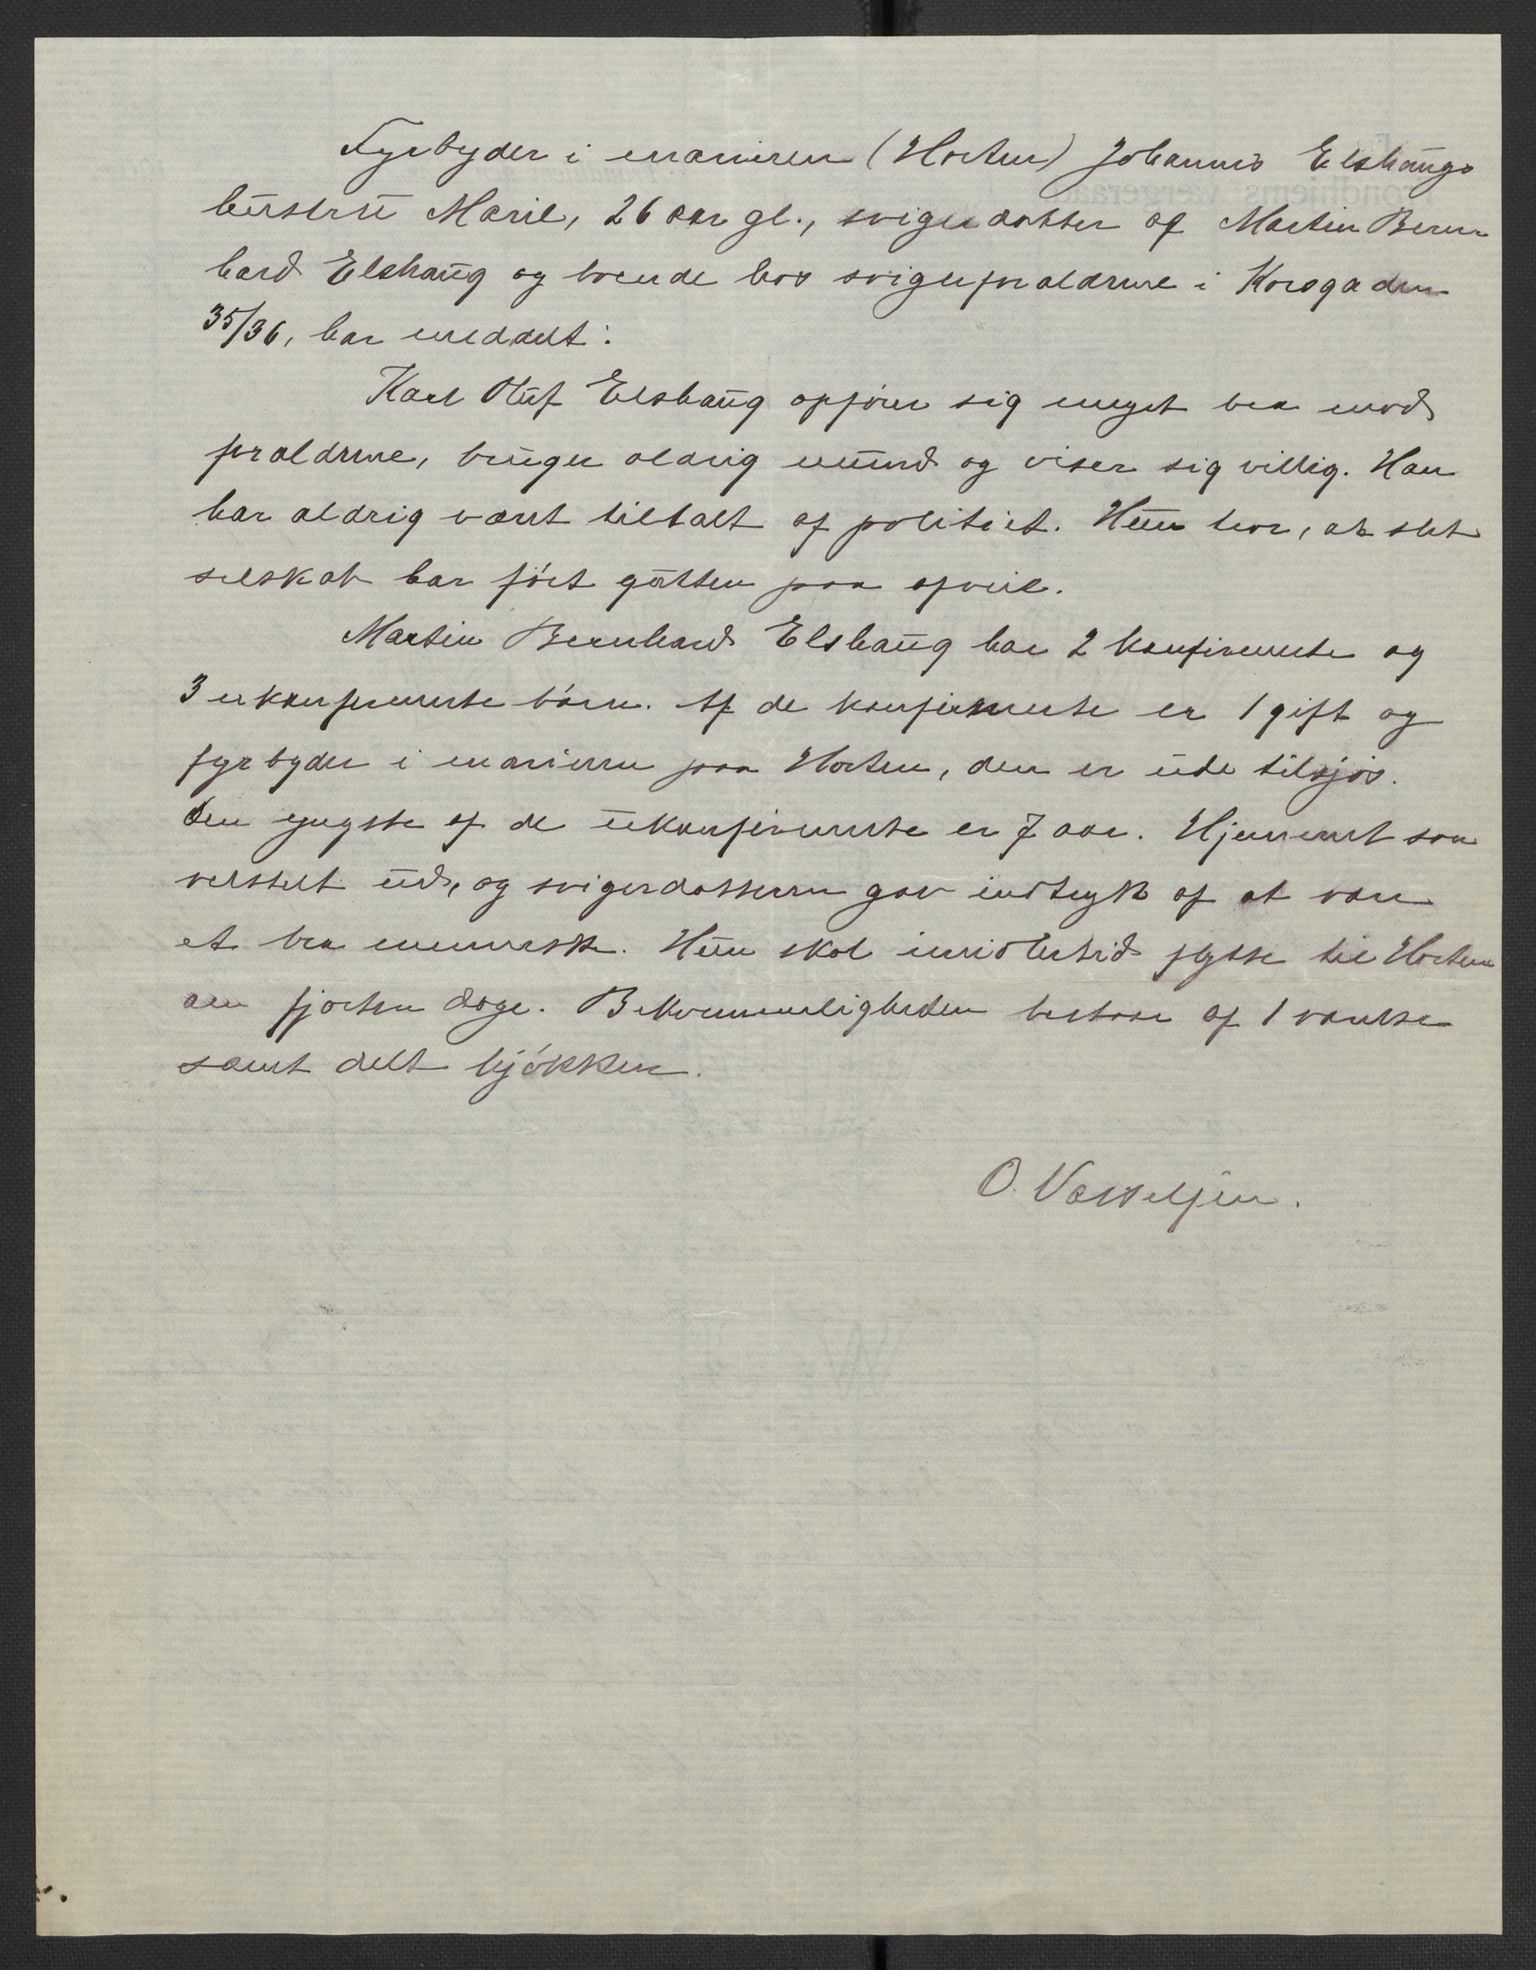 Fyrbyder i marinen (Horten) Johannes Elshaugs
hustru Marie, 26 aar gl., svigerdatter af Martin Bern-
hard Elshaug og boende hos svigerforældrene i Korsgaden
35/36, har meddelt:
Karl Oluf Elshaug opfører sig meget bra mod
forældrene, bruger aldrig mund og viser sig villig. Han
har aldrig vært tiltalt af politiet. Hun tror, at slet
selskab har ført gutten paa afveie.
Martin Bernhard Elshaug har 2 konfirmerte og
3 ukonfirmerte børn. Af de konfirmerte er 1 gift og
fyrbyder i marinen paa Horten, den er ude tilsjøs.
Den yngste af de ukonfirmerte er 7 aar. Hjemmet saa
velstelt ud, og svigerdatteren gav indtryk af at være
et bra menneske. Hun skal imidlertid flytte til Horten
om fjorten dage. Bekvemmeligheden bestaar af 1 værelse
samt delt kjøkken.
O. Vasseljen.